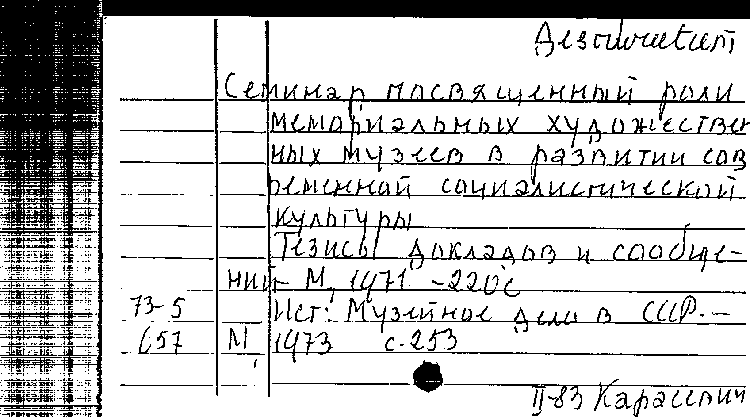 Дезидентат
Семинар посвященный роли
мемориальных художествен
ных музеев в развитии сов
ременной социалистической
культуры
Тезисы докладов и сообще-
ний- М, 1971 -220с
73-5 Ист: Музейное дело в СССР.-
657 М, 1973 с.253
II-83 Карасевич